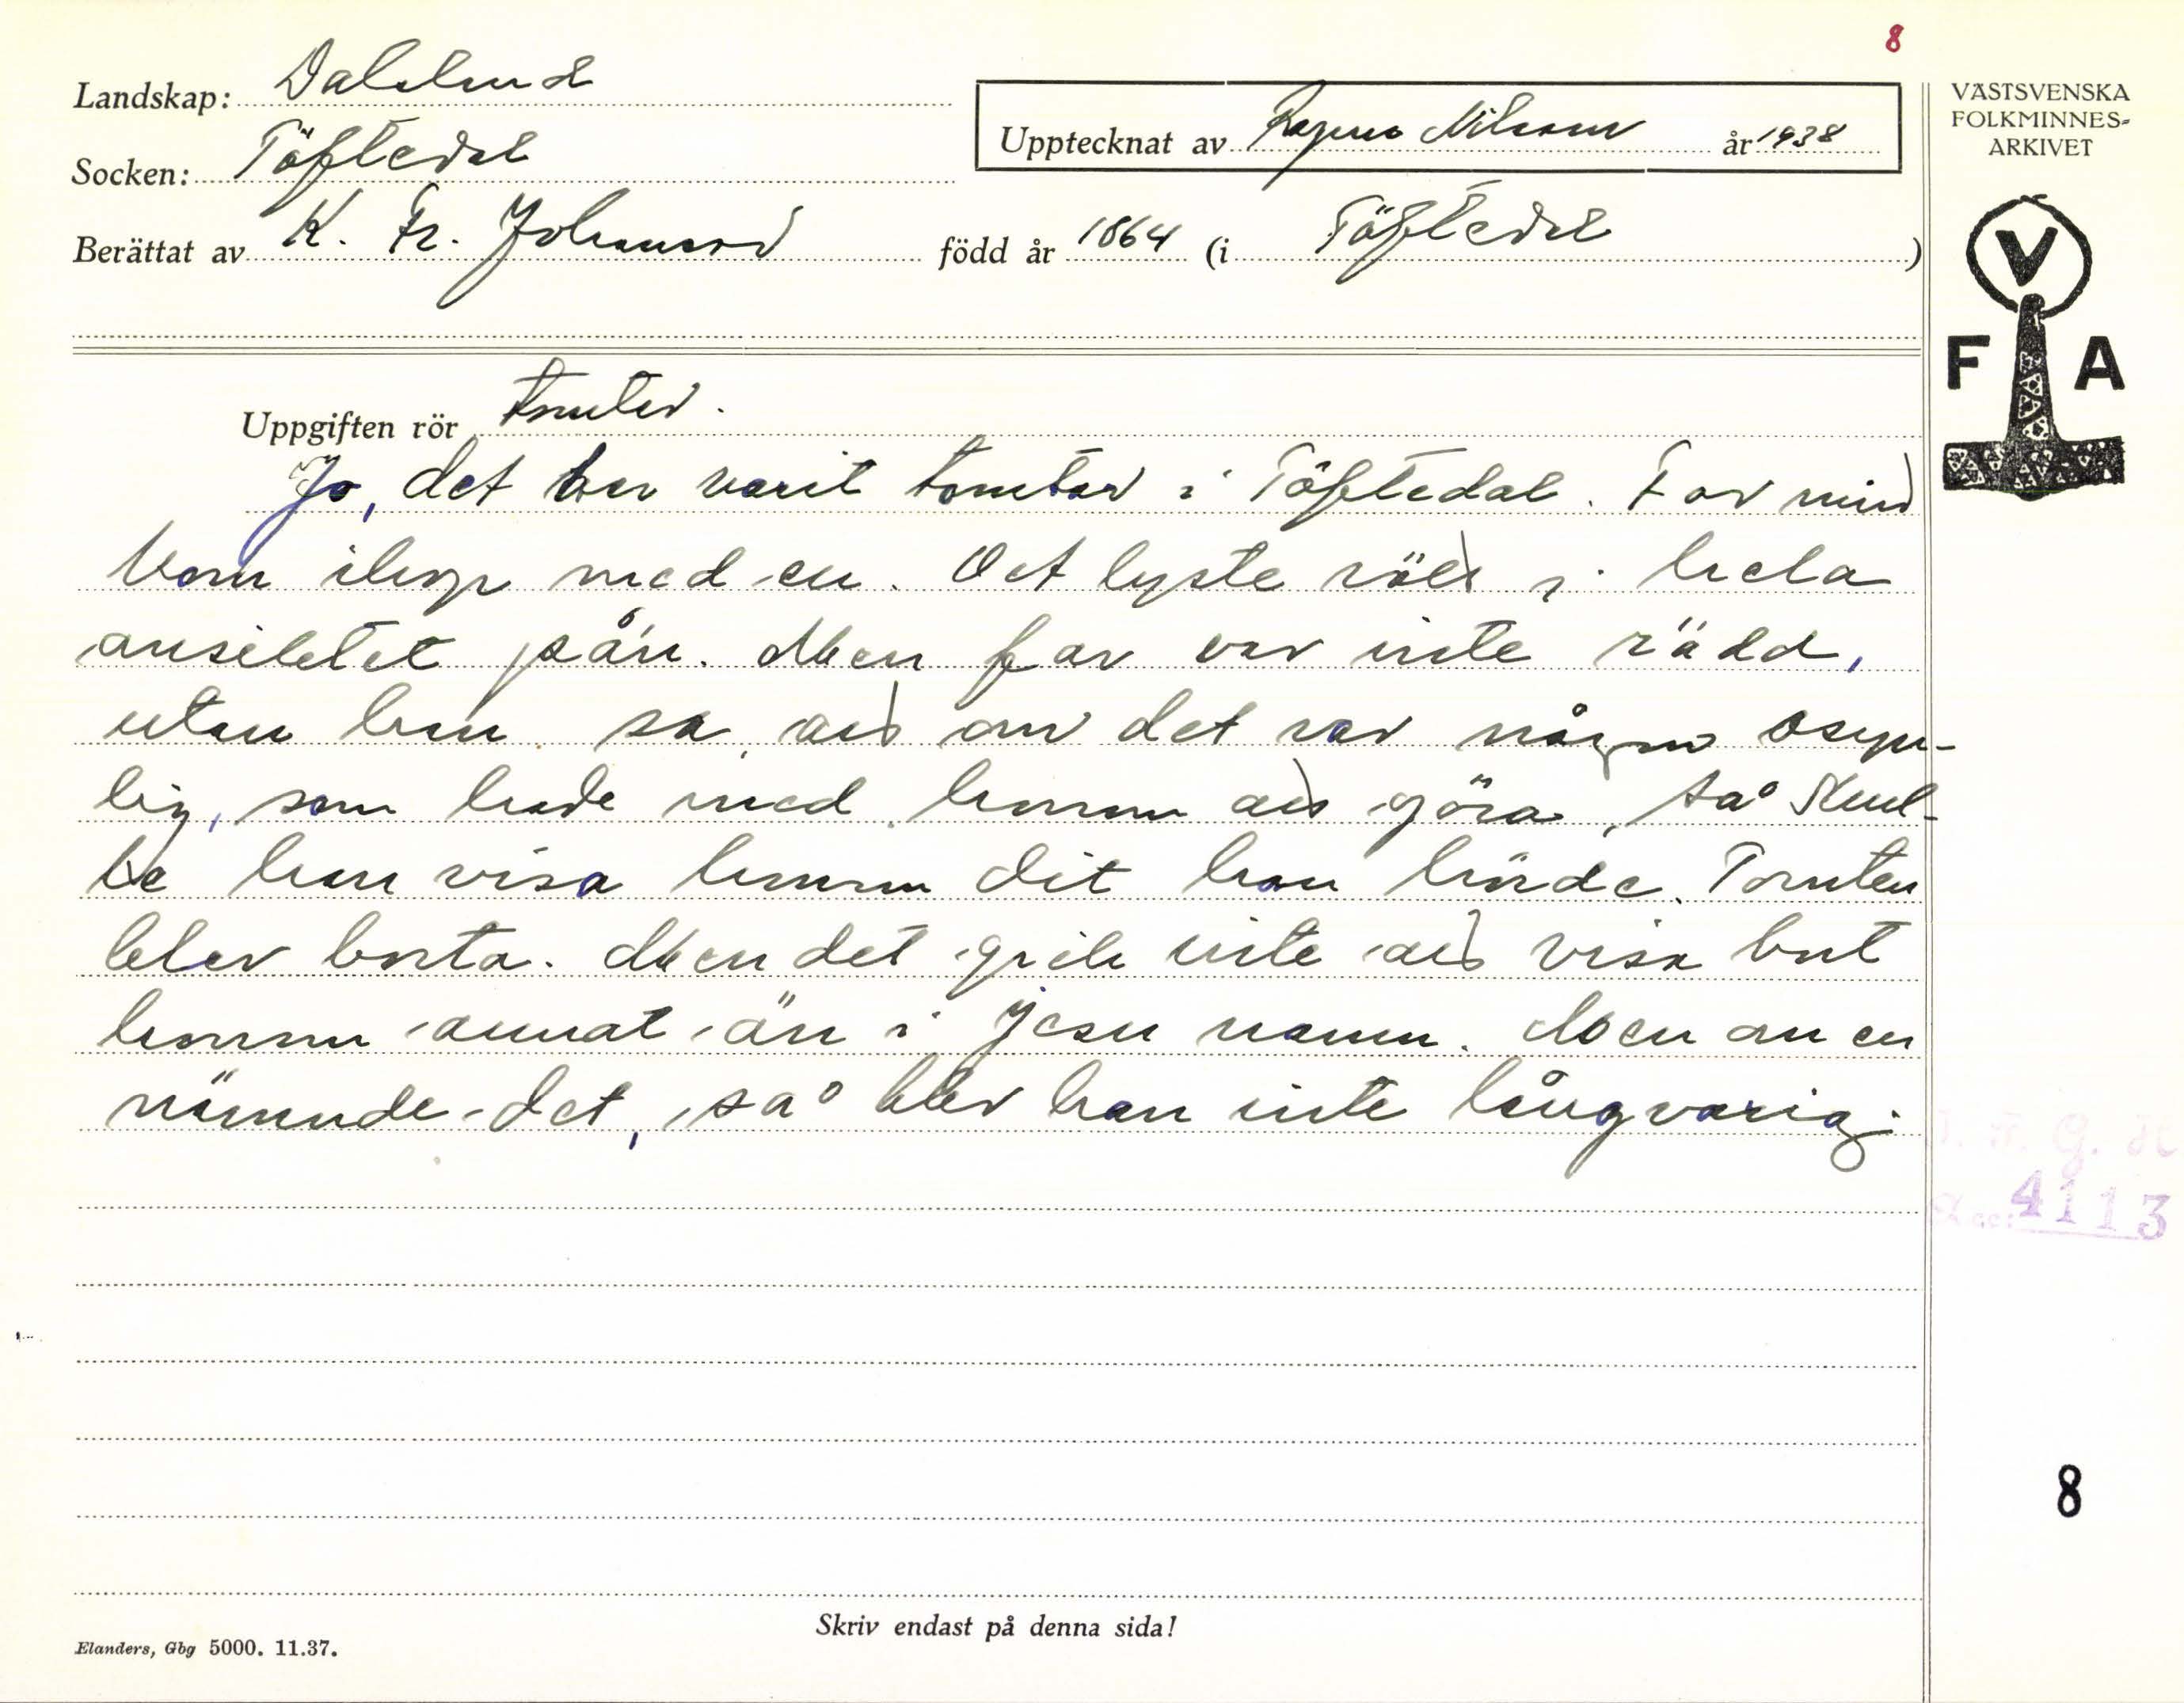 8
Landskap: Dalsland
Upptecknat av Ragnar Nilsson år 1938
VÄSTSVENSKA
FOLKMINNES-
ARKIVET
Socken: Töftedal
Berättat av K. Fr. Johansson född år 1864 (i Töftedal)
V
F A
Uppgiften rör tomten.
Jo, det har varit tomtar i Töftedal. Far min
kom ihop med en. Det lyste rött i hela
ansiktet på'n. Men far var inte rädd,
utan han sa, att om det var någon osyn-
lig, som hade med honom att göra, så skul-
le han visa honom dit han hörde. Tomten
blev borta. Men det gick inte att visa bort
honom annat än i Jesu namn. Men om en
nämnde det, så blev han inte långvarig.
4113
8
Skriv endast på denna sida!
Elanders, Gbg 5000. 11.37.